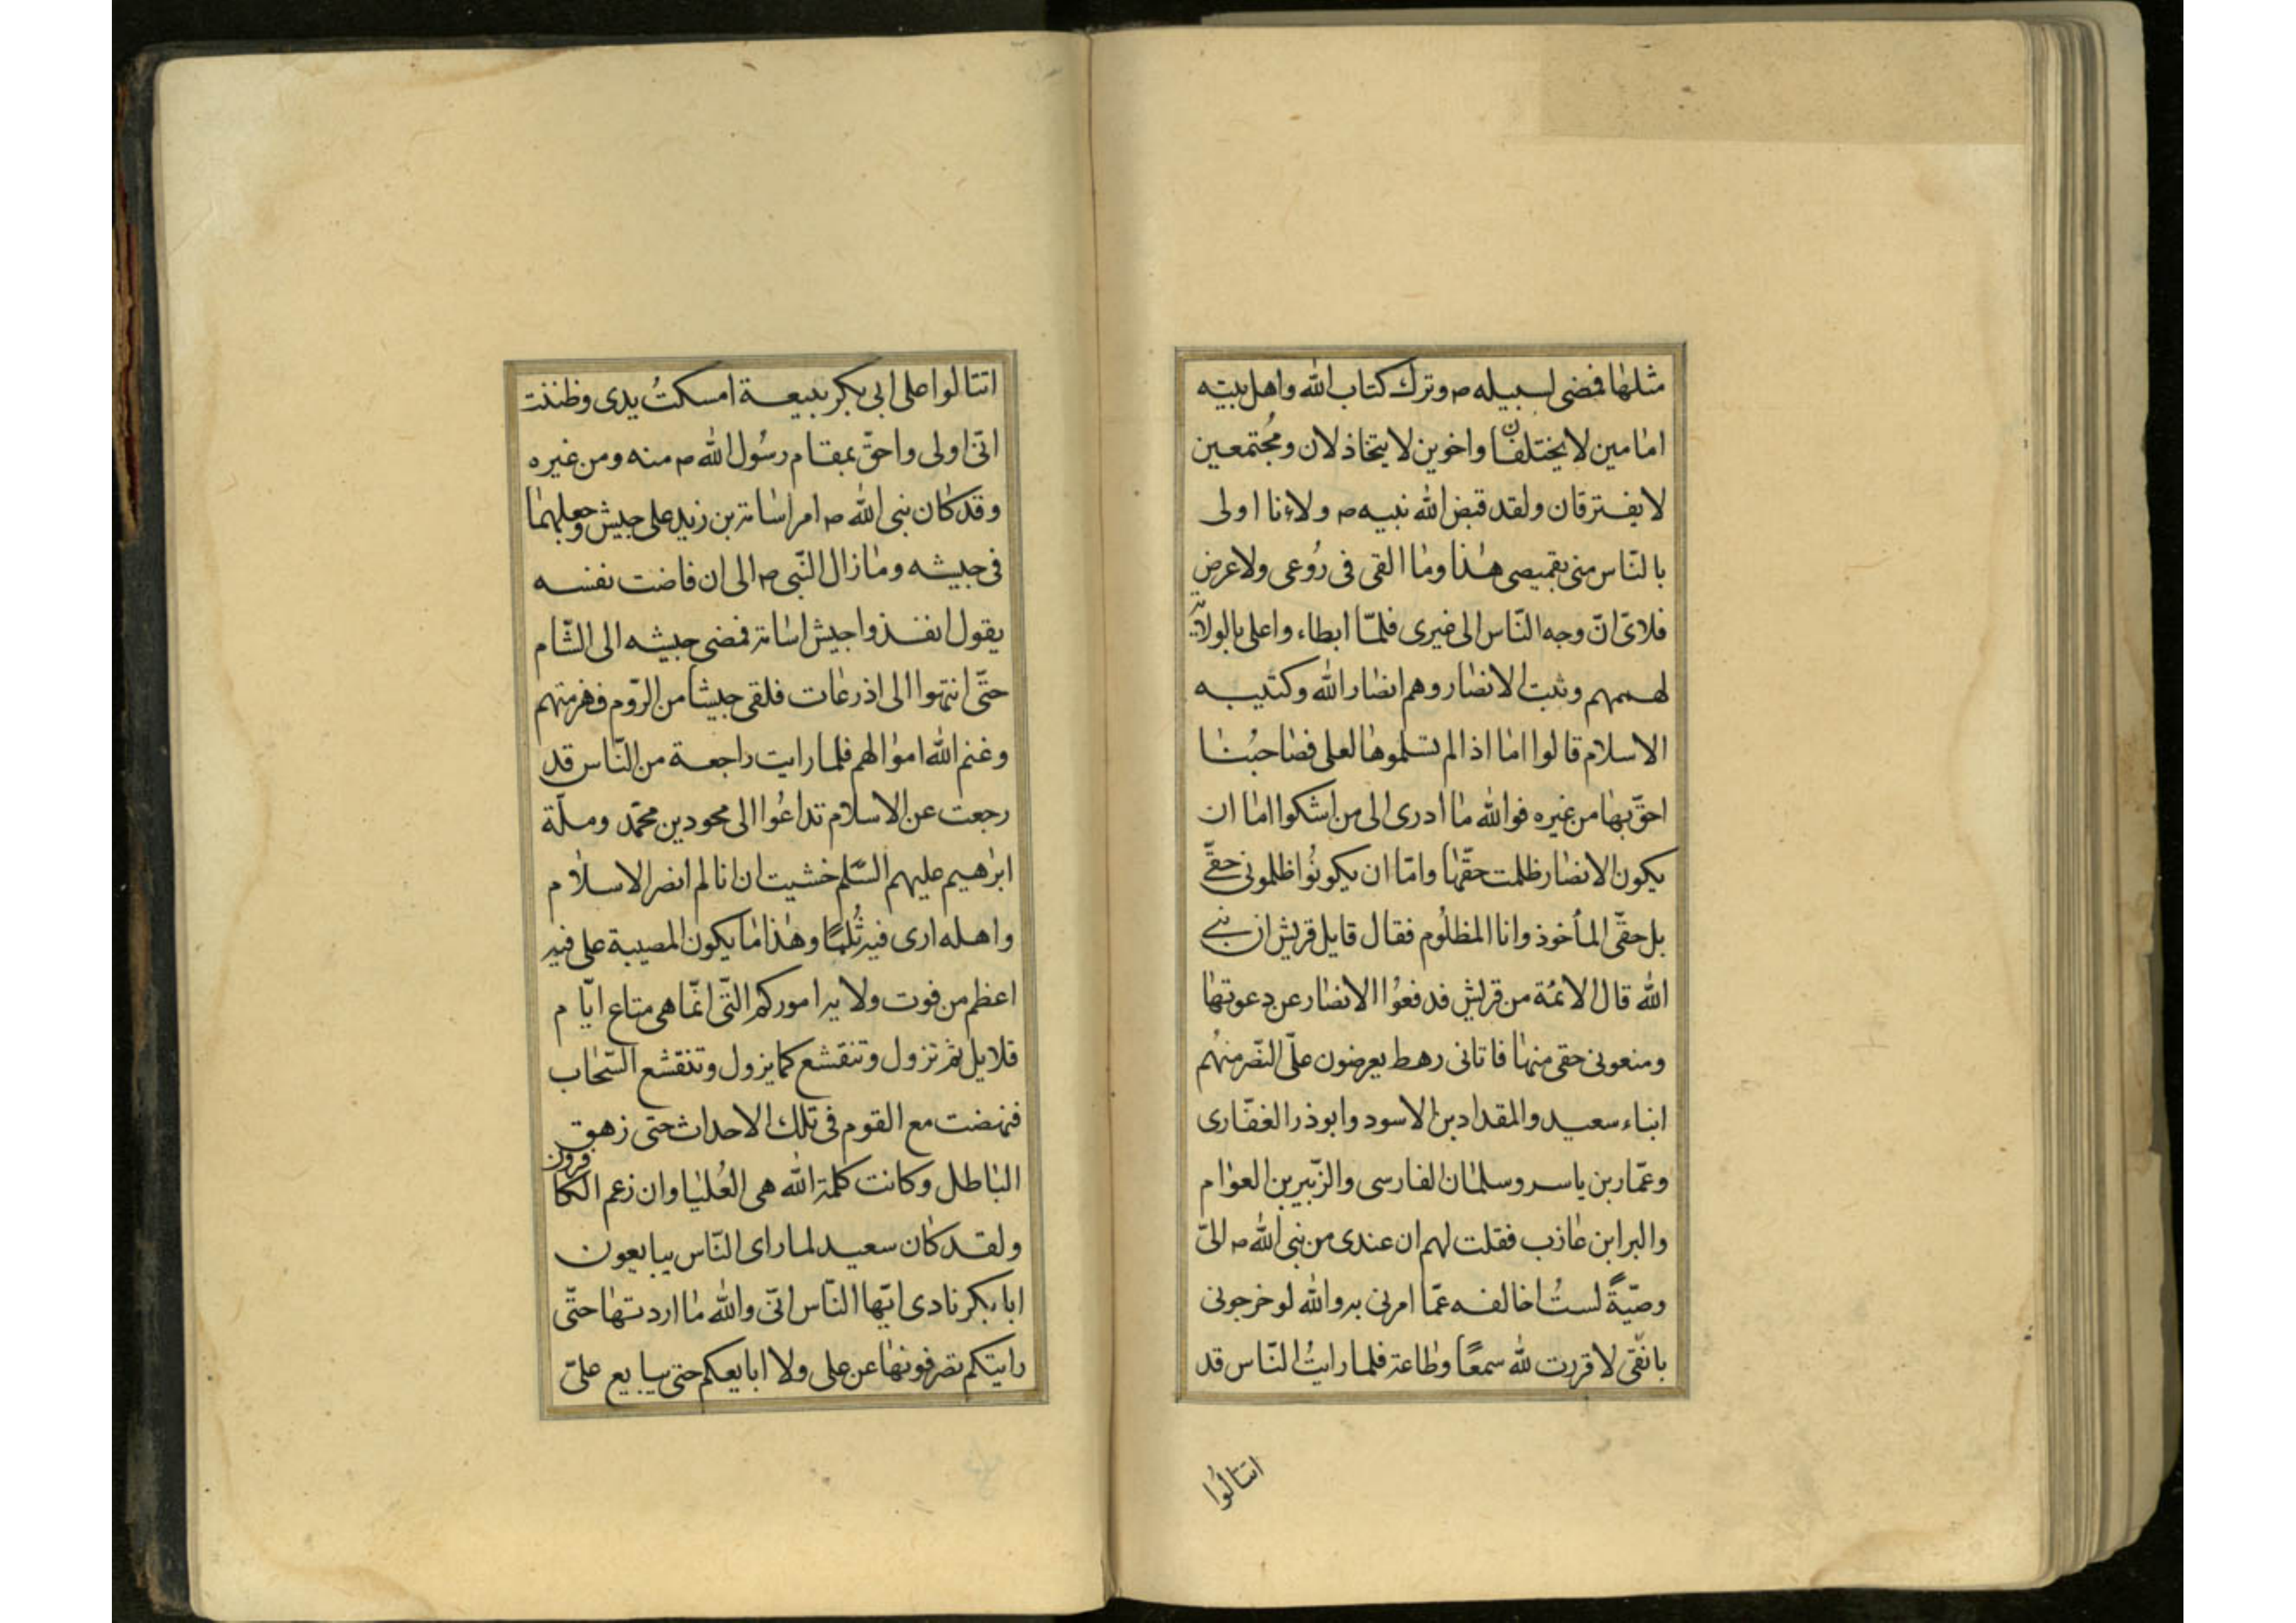 مثلها فمضى لسبيله ص وترك كتاب الله واهل بيته
امامين لا يختلفان واخوين لا يتخاذلان ومُجتمعين
لا يفترقان ولقد قبض الله نبيه ص ولاءنا اولى
بالنّاس منى بقميصى هذا وما القى فى رُوعى ولا عرض
فلا ىّ انّ وجه النّاس الى غيرى فلمّا ابطاء واعلى بالولاية
لهممهم وثبت الانصار وهم انصار الله وكتيبه
الاسلام قالوا اما اذا لم تسلموها لعلى فصاحبُنا
احقّ بها من غيره فوالله ما ادرى الى من اشكوا اما ان
يكون الانصار ظلمت حقّها وامّا ان يكونُوا ظلمونى حقّى
بل حقّى المأخوذ وانا المظلُوم فقال قايل قريش ان نبى
الله قال الائمّة من قريش فدفعُوا الانصار عن دعوتها
ومنعونى حقى منها فاتانى رهط يعرضون علىّ النّصر منهُم
ابناء سعيد والمقداد بن الاسود وابوذر الغفّارى
وعمّار بن ياسر وسلمان الفارسى والزّبير بن العوام
والبرا بن عازب فقلت لهم ان عندى من نبى الله ص الىّ
وصيّةً لستُ اخالفه عمّا امرنى به والله لو خرجونى
بانفى لا قررت لله سمعًا وطاعة فلما رايتُ النّاس قد
انتالُوا
انتالوا على ابى بكر ببيعة امسكتُ يدى وظننت
انّى اولى واحقّ بمقام رسُول الله ص منه ومن غيره
وقد كان نبى الله ص امر اسامة بن زيد على جيش وجعلهما
فى جيشه وما زال النّبى ص الى ان فاضت نفسه
يقول انفذوا جيش اسامة فمضى جيشه الى الشّام
حتّى انتهوا الى اذرعات فلقى جيشا من الرّوم فهزمتهم
وغنم الله اموالهم فلما رايت راجعة من النّاس قد
رجعت عن الاسلام تداعُوا الى محو دين محمّد وملّة
ابرهيم عليهم السّلم خشيت ان انا لم انصر الاسلام
واهله ارى فيه ثُلمًا وهذا ما يكون المصيبة على فيه
اعظم من فوت ولاية اموركم التّى انّما هى متاع ايّام
قلايل ثم تزول وتنقشع كما يزول وتنقشع السّحاب
فنهضت مع القوم فى تلك الاحداث حتى زهق
الباطل وكانت كلمة الله هى العُليا وان زعم الكافرون
ولقد كان سعيد لما راى النّاس يبايعون
ابا بكر نادى ايّها النّاس انّى والله ما اردتها حتّى
رايتكم تصرفونها عن على ولا ابايعكم حتى يبايع علىّ